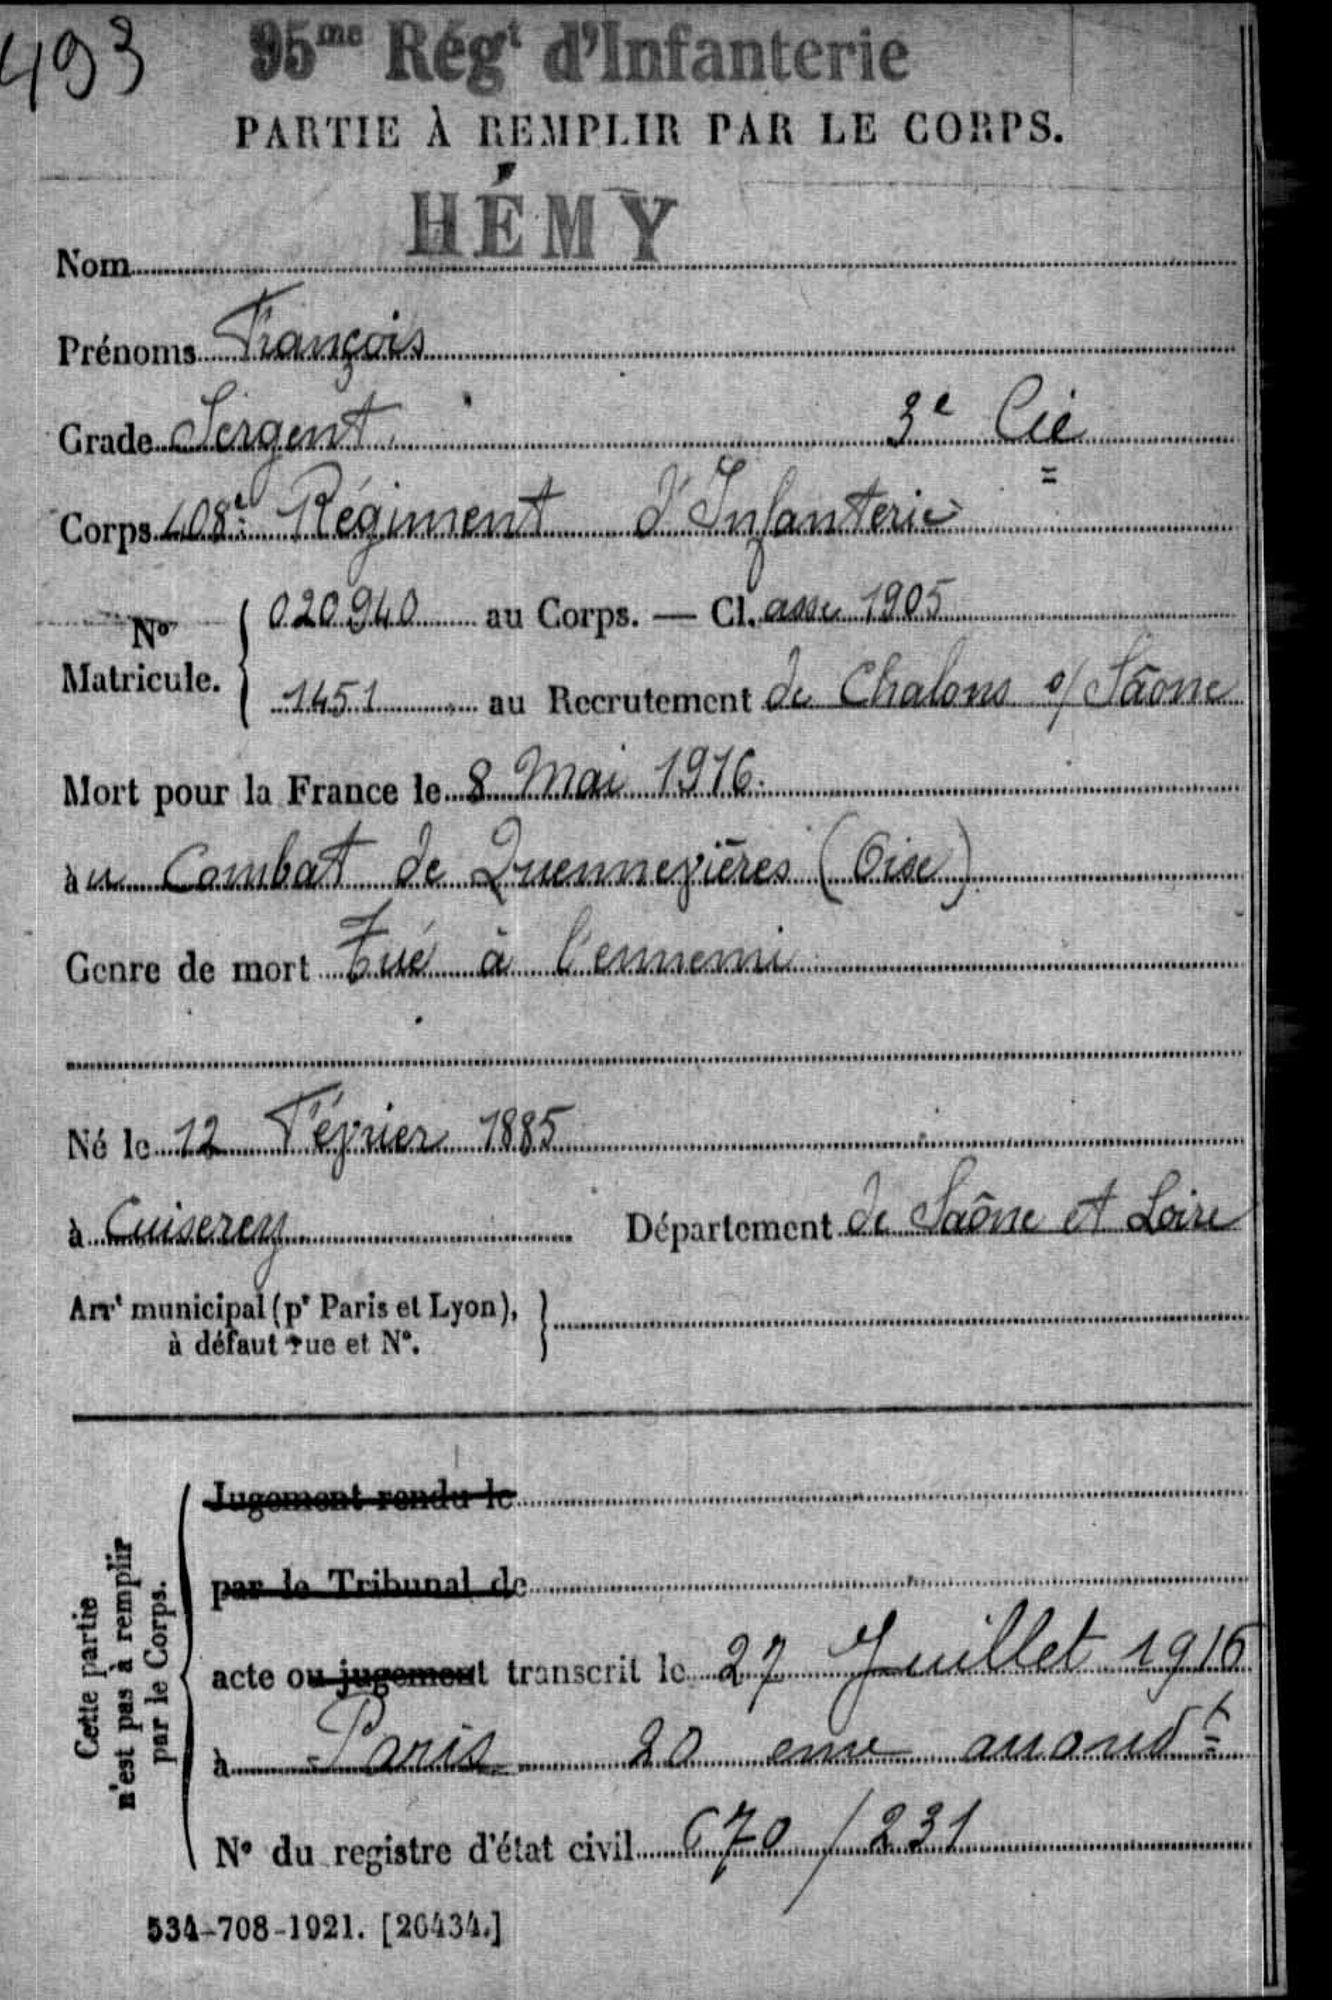 493
95me Régt d'Infanterie
PARTIE À REMPLIR PAR LE CORPS.
Nom HÉMY
Prénoms François
Grade Sergent. 3e Cie
Corps 408e Régiment d'Infanterie
No Matricule. 020940 au Corps. — Cl. asse 1905
1451 au Recrutement de Chalons s/ Saône
Mort pour la France le 8 Mai 1916.
au Combat de Quennevières (Oise)
Genre de mort Tué à l'ennemi
Né le 12 Février 1885
à Cuiserey Département de Saône et Loire
Arrt municipal (pr Paris et Lyon),
à défaut rue et No.
Cette partie
n'est pas à remplir
par le Corps.
Jugement rendu le
par le Tribunal de
acte ou jugement transcrit le 27 Juillet 1916
à Paris 20 eme arrondt
No du registre d'état civil 670/231
534-708-1921. [26434.]